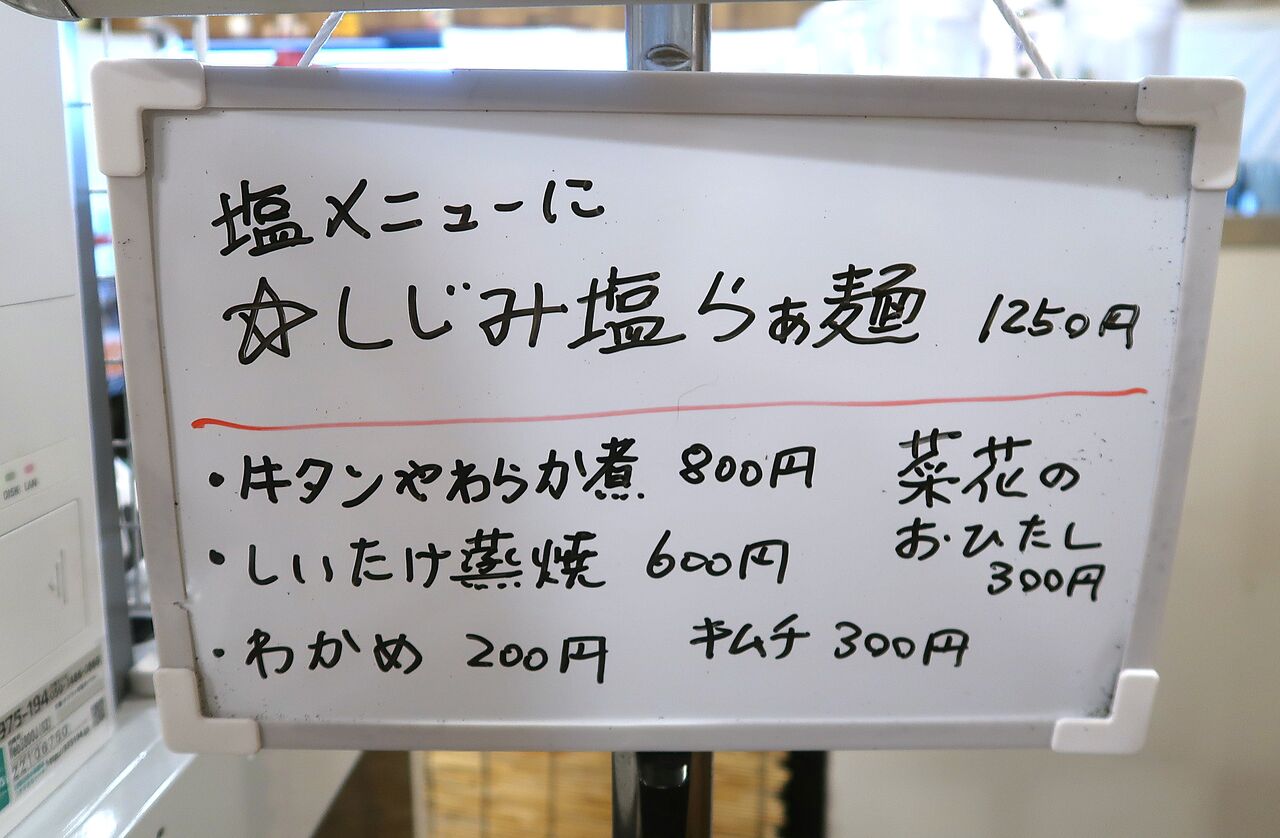 塩メニューに
☆しじみ塩らぁ麺 1250円
・牛タンやわらか煮 800円
・しいたけ蒸焼 600円
・わかめ 200円 キムチ 300円
菜花の
おひたし
300円
DISK LAN
975-194